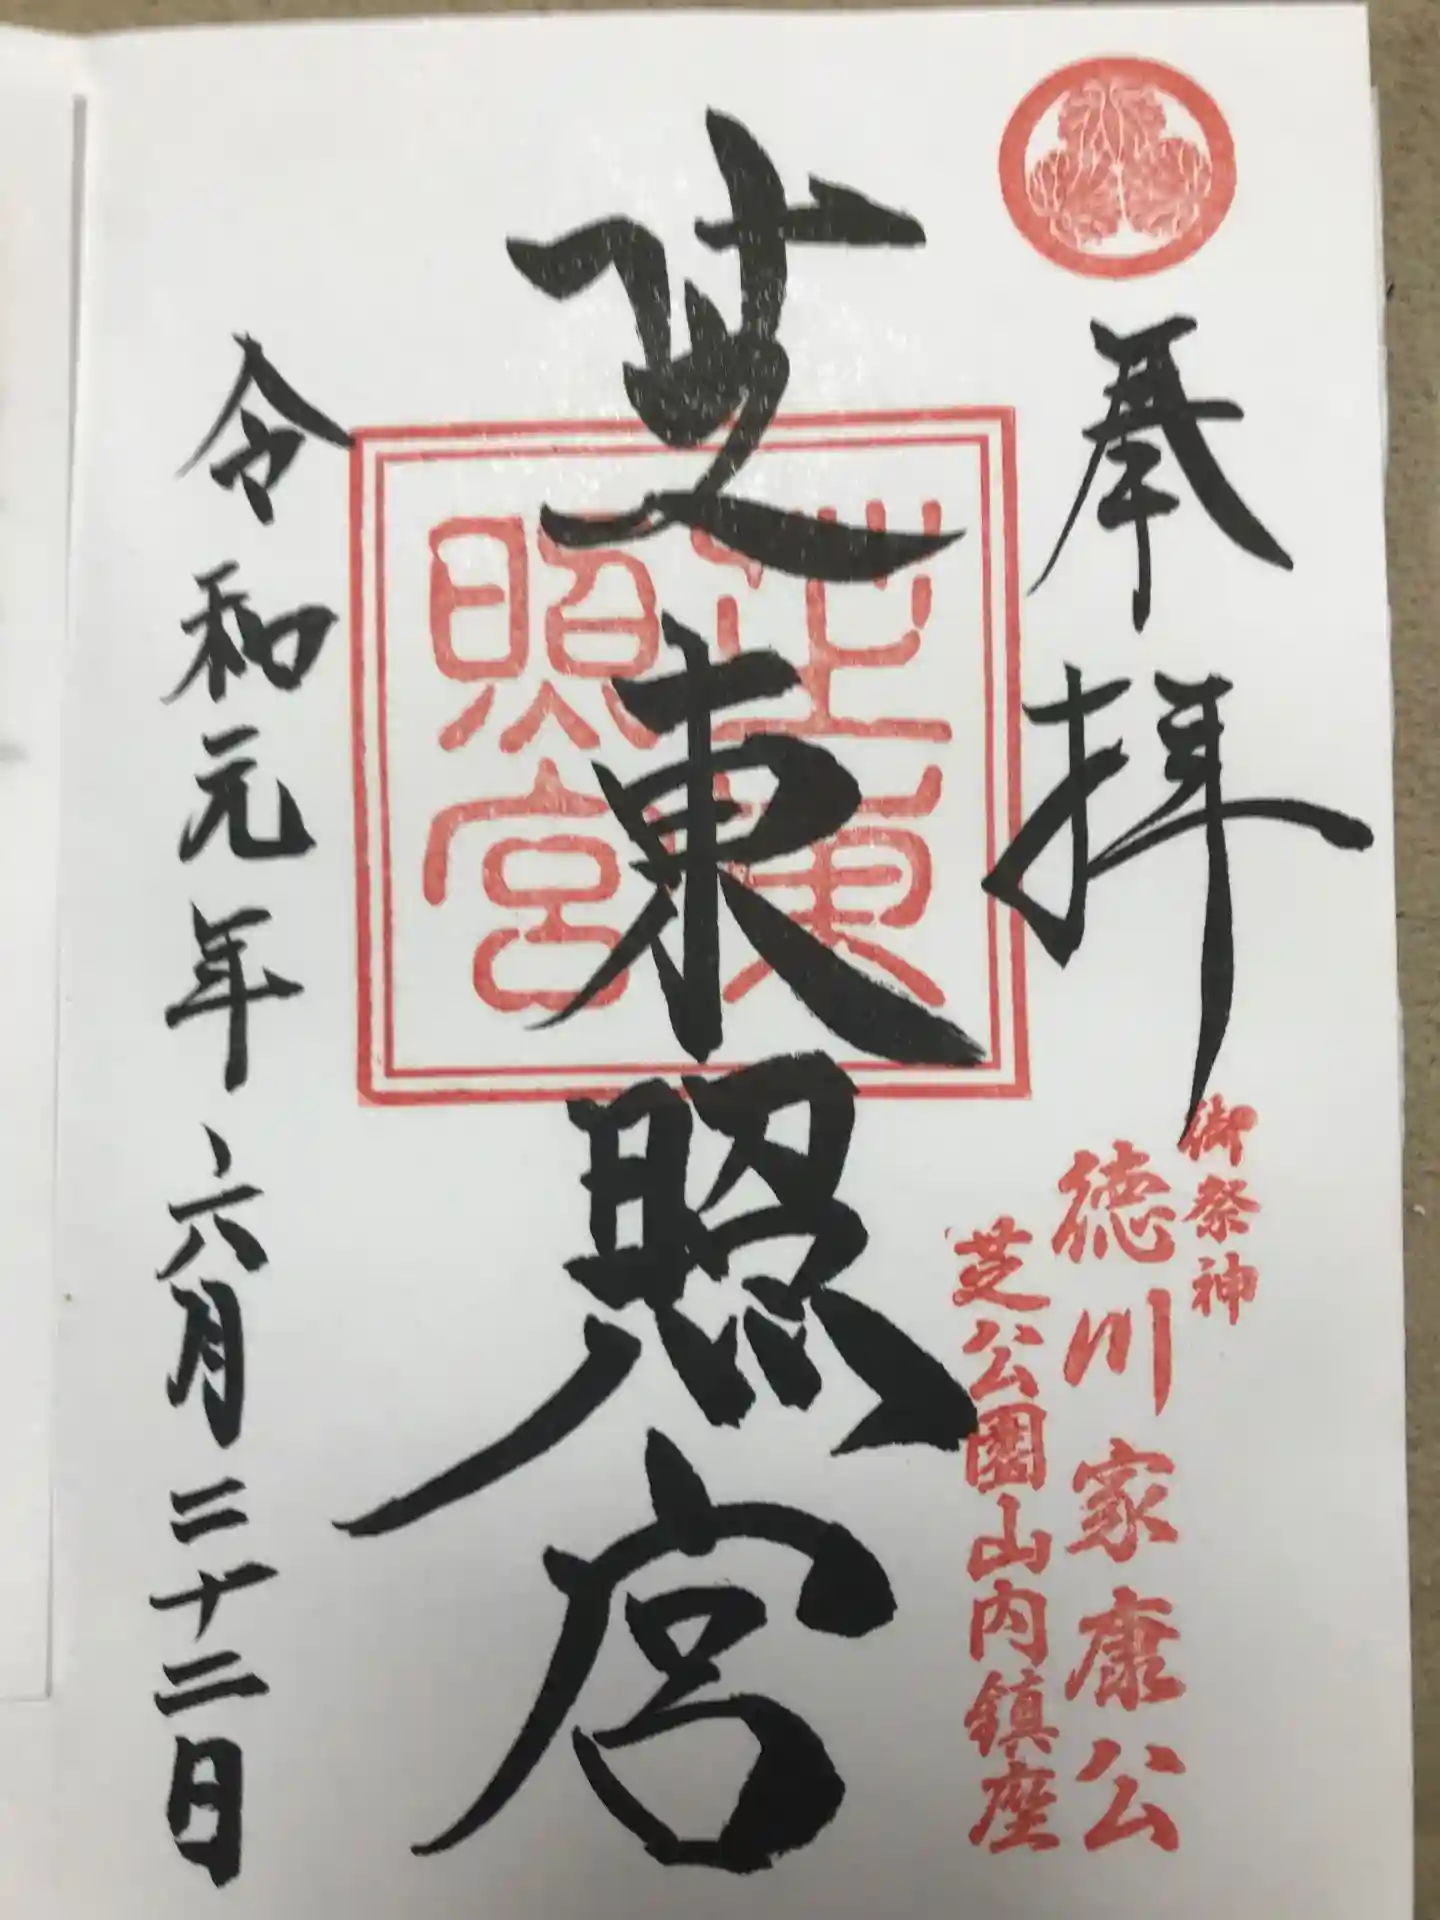 奉拝
御祭神
徳川家康公
芝公園山内鎮座
芝東照宮
芝東
照宮
令和元年六月二十二日